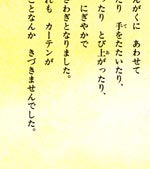 んがくに　あわせて
たり　手をたたいたり、
ったり　とび上がったり、
にぎやかで
さわぎとなりました。
れも　カーテンが
ことなんか　きづきませんでした。